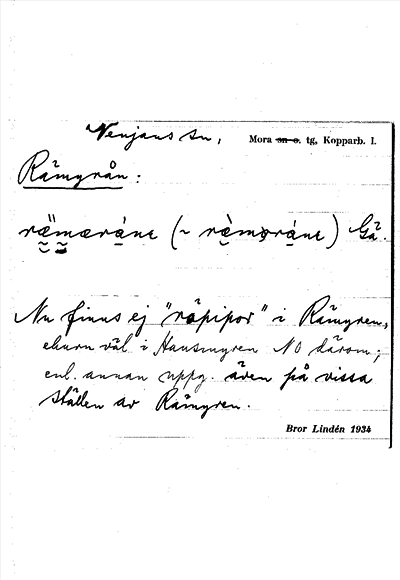 Venjans sn,
Mora sn o. tg, Kopparb. l.
Rämyrån:
Gä.
Nu finns ej "råpipor" i Rämyren,
ehuru väl i Hansmyren NO därom;
enl. annan uppg. även på vissa
ställen av Rämyren.
Bror Lindén 1934